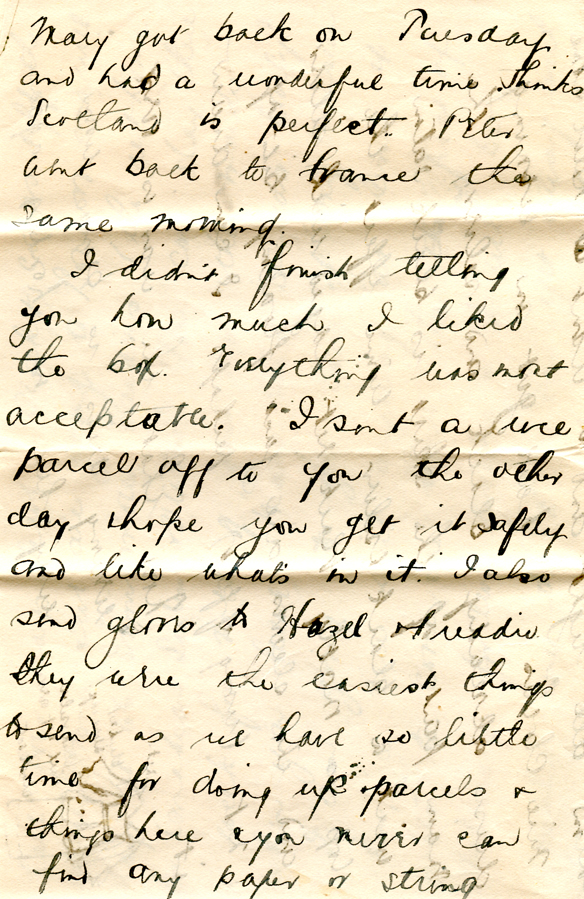 Mary got back on Tuesday
and had a wonderful time. Thinks
Scotland is perfect. Peter
went back to France the
same morning.
I didn't finish telling
you how much I liked
the box. Everything was most
acceptable. I sent a wee
parcel off to you the other
day & hope you get it safely
and like what's in it. I also
send gloves to Hazel &
they were the easiest things
to send as we have so little
time for doing up parcels &
things here & you never can
find any paper or string